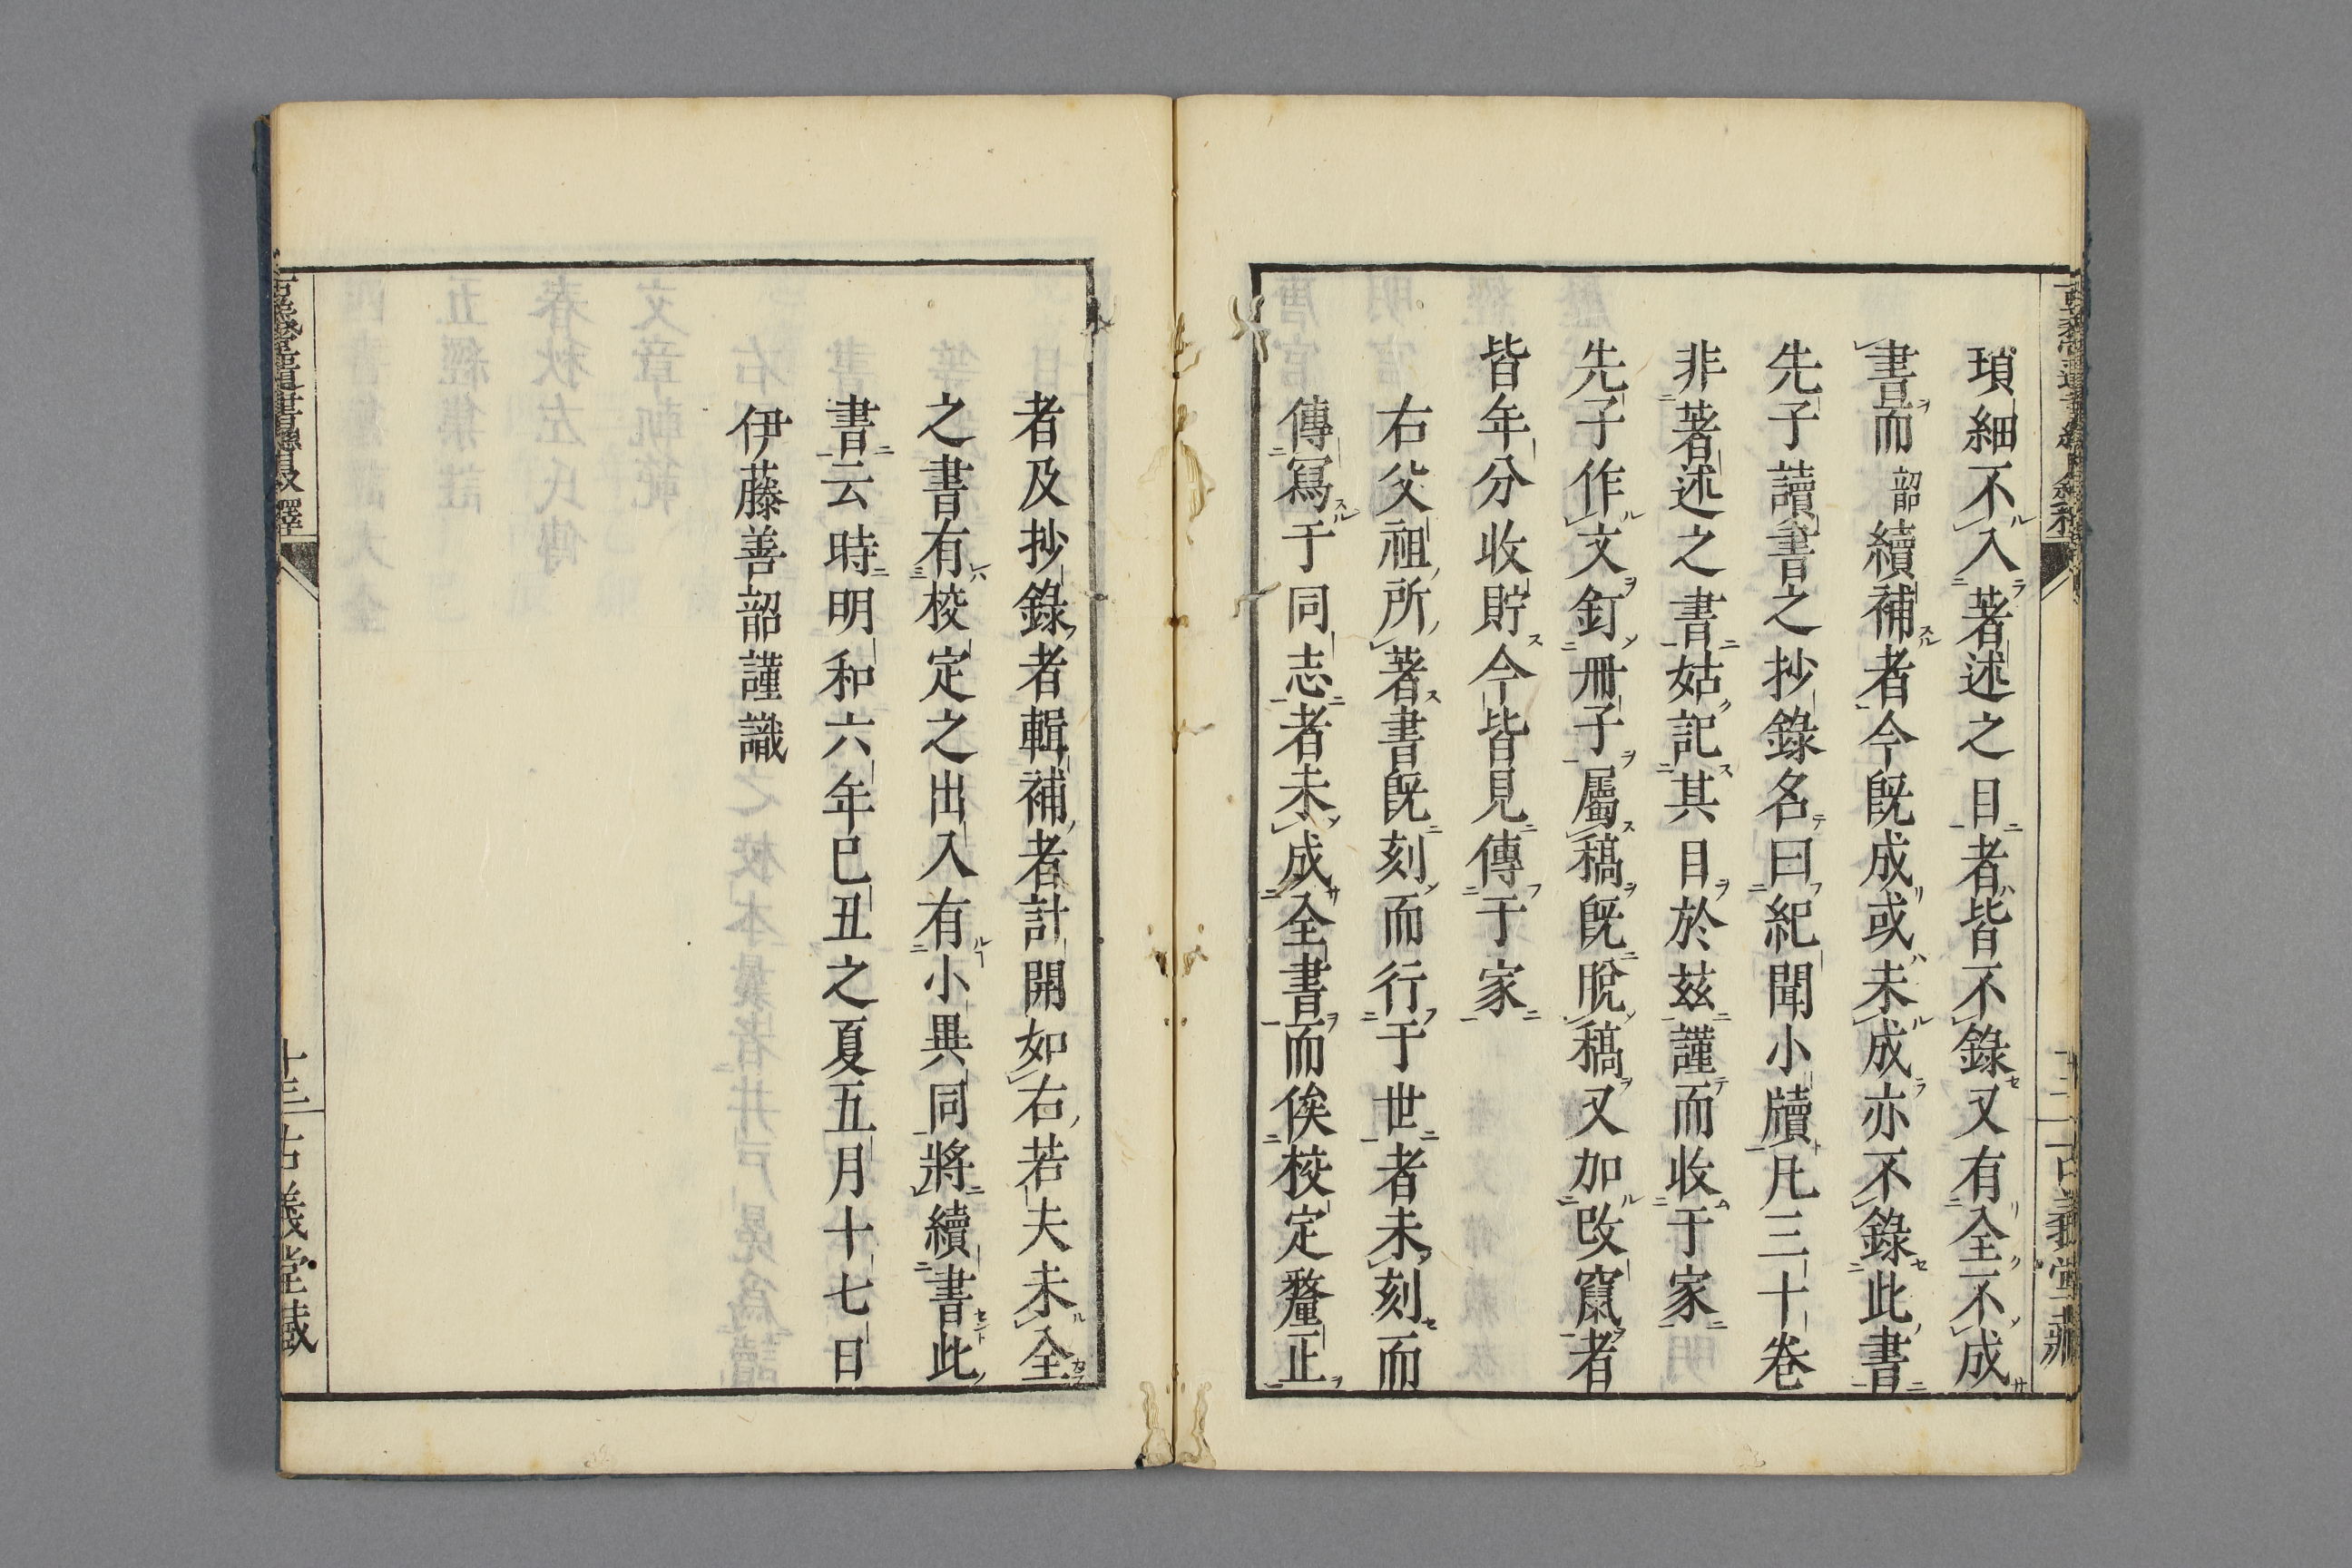 瑣細不入著述之目者皆不錄又有全不成
書而韶續補者今既成或未成亦不錄此書
先子讀書之抄錄名曰紀聞小牘凡三十卷
非著述之書姑記其目於茲謹而收于家
先子作文釘冊子屬稿既脫稿又加改竄者
皆年分收貯今皆見傳于家
右父祖所著書既刻而行于世者未刻而
傳寫于同志者未成全書而俟校定釐正
者及抄錄者輯補者計開如右若夫未全
之書有校定之出入有小異同將續書此
書云時明和六年己丑之夏五月十七日
伊藤善韶謹識
古義堂藏